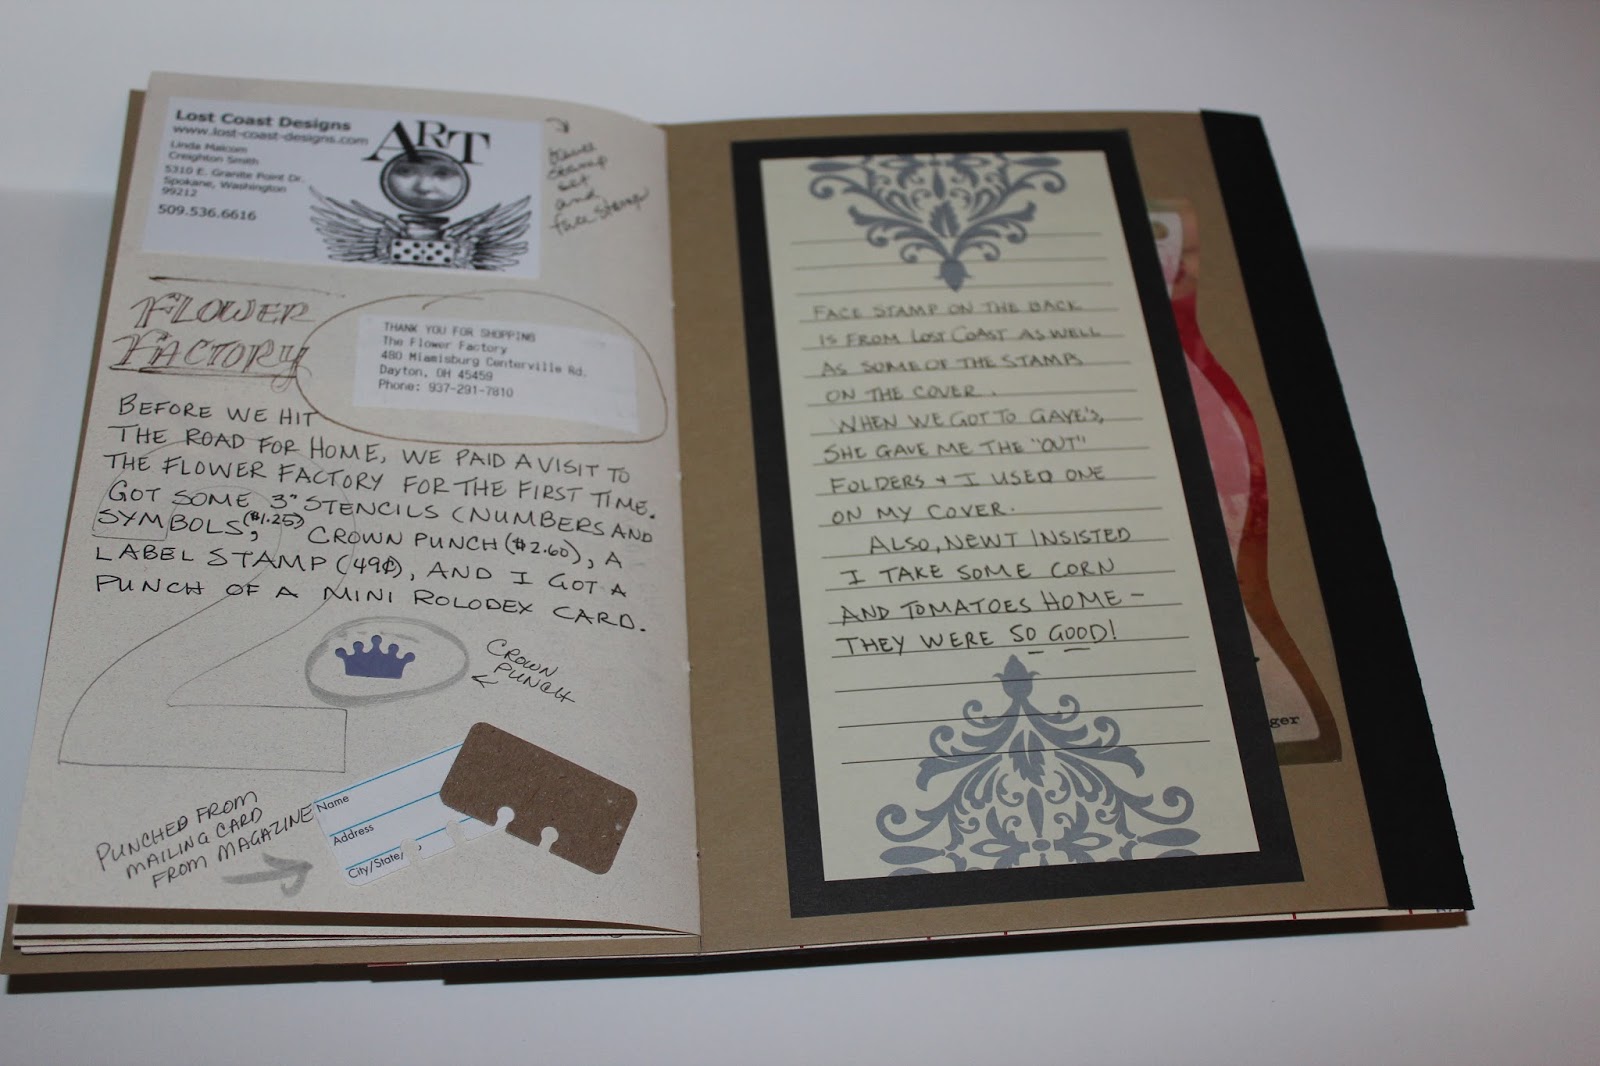 Lost Coast Designs
www.lost-coast-designs.com
Linda Malcom
Creighton Smith
5310 E. Granite Point Dr.
Spokane, Washington
99212
509.536.6616
ART
stamp
set
and
face stamp
FLOWER
FACTORY
THANK YOU FOR SHOPPING
The Flower Factory
480 Miamisburg Centerville Rd.
Dayton, OH 45459
Phone: 937-291-7810
BEFORE WE HIT
THE ROAD FOR HOME, WE PAID A VISIT TO
THE FLOWER FACTORY FOR THE FIRST TIME.
GOT SOME 3" STENCILS (NUMBERS AND
SYMBOLS, ($1.25) CROWN PUNCH ($2.60), A
LABEL STAMP (49¢), AND I GOT A
PUNCH OF A MINI ROLODEX CARD.
2
CROWN
PUNCH
PUNCHED FROM
MAILING CARD
FROM MAGAZINE
Name
Address
City/State/
FACE STAMP ON THE BACK
IS FROM LOST COAST AS WELL
AS SOME OF THE STAMPS
ON THE COVER.
WHEN WE GOT TO GAYE'S,
SHE GAVE ME THE "OUT"
FOLDERS + I USED ONE
ON MY COVER.
ALSO, NEWT INSISTED
I TAKE SOME CORN
AND TOMATOES HOME -
THEY WERE SO GOOD!
ger